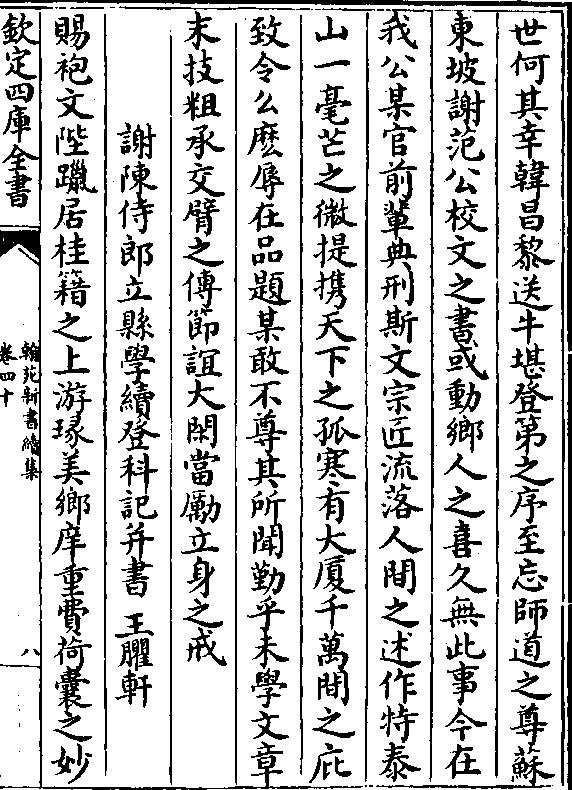 世何其幸韓昌黎送牛堪登第之序至忘師道之尊蘇
東坡謝范公校文之書或動鄉人之喜久無此事今在
我公某官前輩典刑斯文宗匠流落人間之述作特泰
山一毫芒之微提携天下之孤寒有大厦千萬間之庇
致令么麽辱在品題某敢不尊其所聞勤乎未學文章
末技粗承交臂之傳節誼大閑當勵立身之戒
謝陳侍郎立縣學續登科記并書 王臞軒
賜袍文陛躐居桂籍之上游瑑美鄉庠重費荷囊之妙
欽定四庫全書
翰苑新書續集
卷四十
八